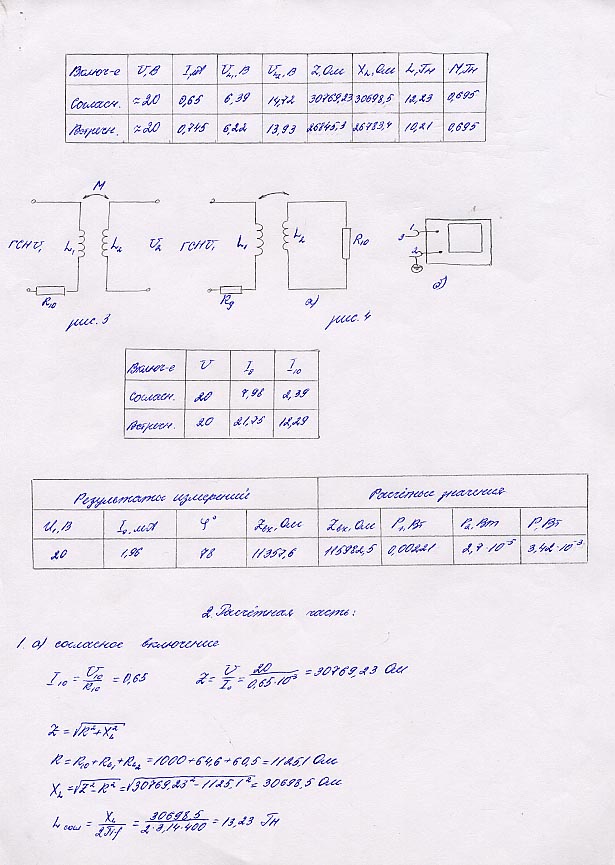 Включ-е U, В I, мА U₂₁, В U₂₂, В Z, Ом X_L, Ом L, Гн M, Гн
Согласн. ≈20 0,65 6,39 14,72 30769,23 30698,5 12,23 0,695
Встречн. ≈20 0,745 6,22 13,93 26845,3 26783,4 10,21 0,695
M
ГСН U₁ L₁ L₂ U₂ ГСН U₁ L₁ L₂ R₁₀ 1 3 2
R₁₀ R₉ а) б)
рис. 3 рис. 4
Включ-е U I₉ I₁₀
Согласн. 20 7,98 2,39
Встречн. 20 21,75 12,29
Результаты измерений Расчётные значения
U₁, В I₉, мА φ° Zвх, Ом Zвх, Ом P₁, Вт P₂, Вт P, Вт
20 1,96 78 11357,6 115982,5 0,00221 2,7·10⁻⁵ 3,42·10⁻³
2. Расчётная часть:
1. а) согласное включение
I₁₀ = U₁₀/R₁₀ = 0,65 Z = U/I₀ = 20/0,65·10⁻³ = 30769,23 Ом
Z = √R² + X_L²
R = R₁₀ + R_L₁ + R_L₂ = 1000 + 64,6 + 60,5 = 1125,1 Ом
X_L = √Z² − R² = √30769,23² − 1125,1² = 30698,5 Ом
L согл = X_L/2πf = 30698,5/2·3,14·400 = 13,23 Гн